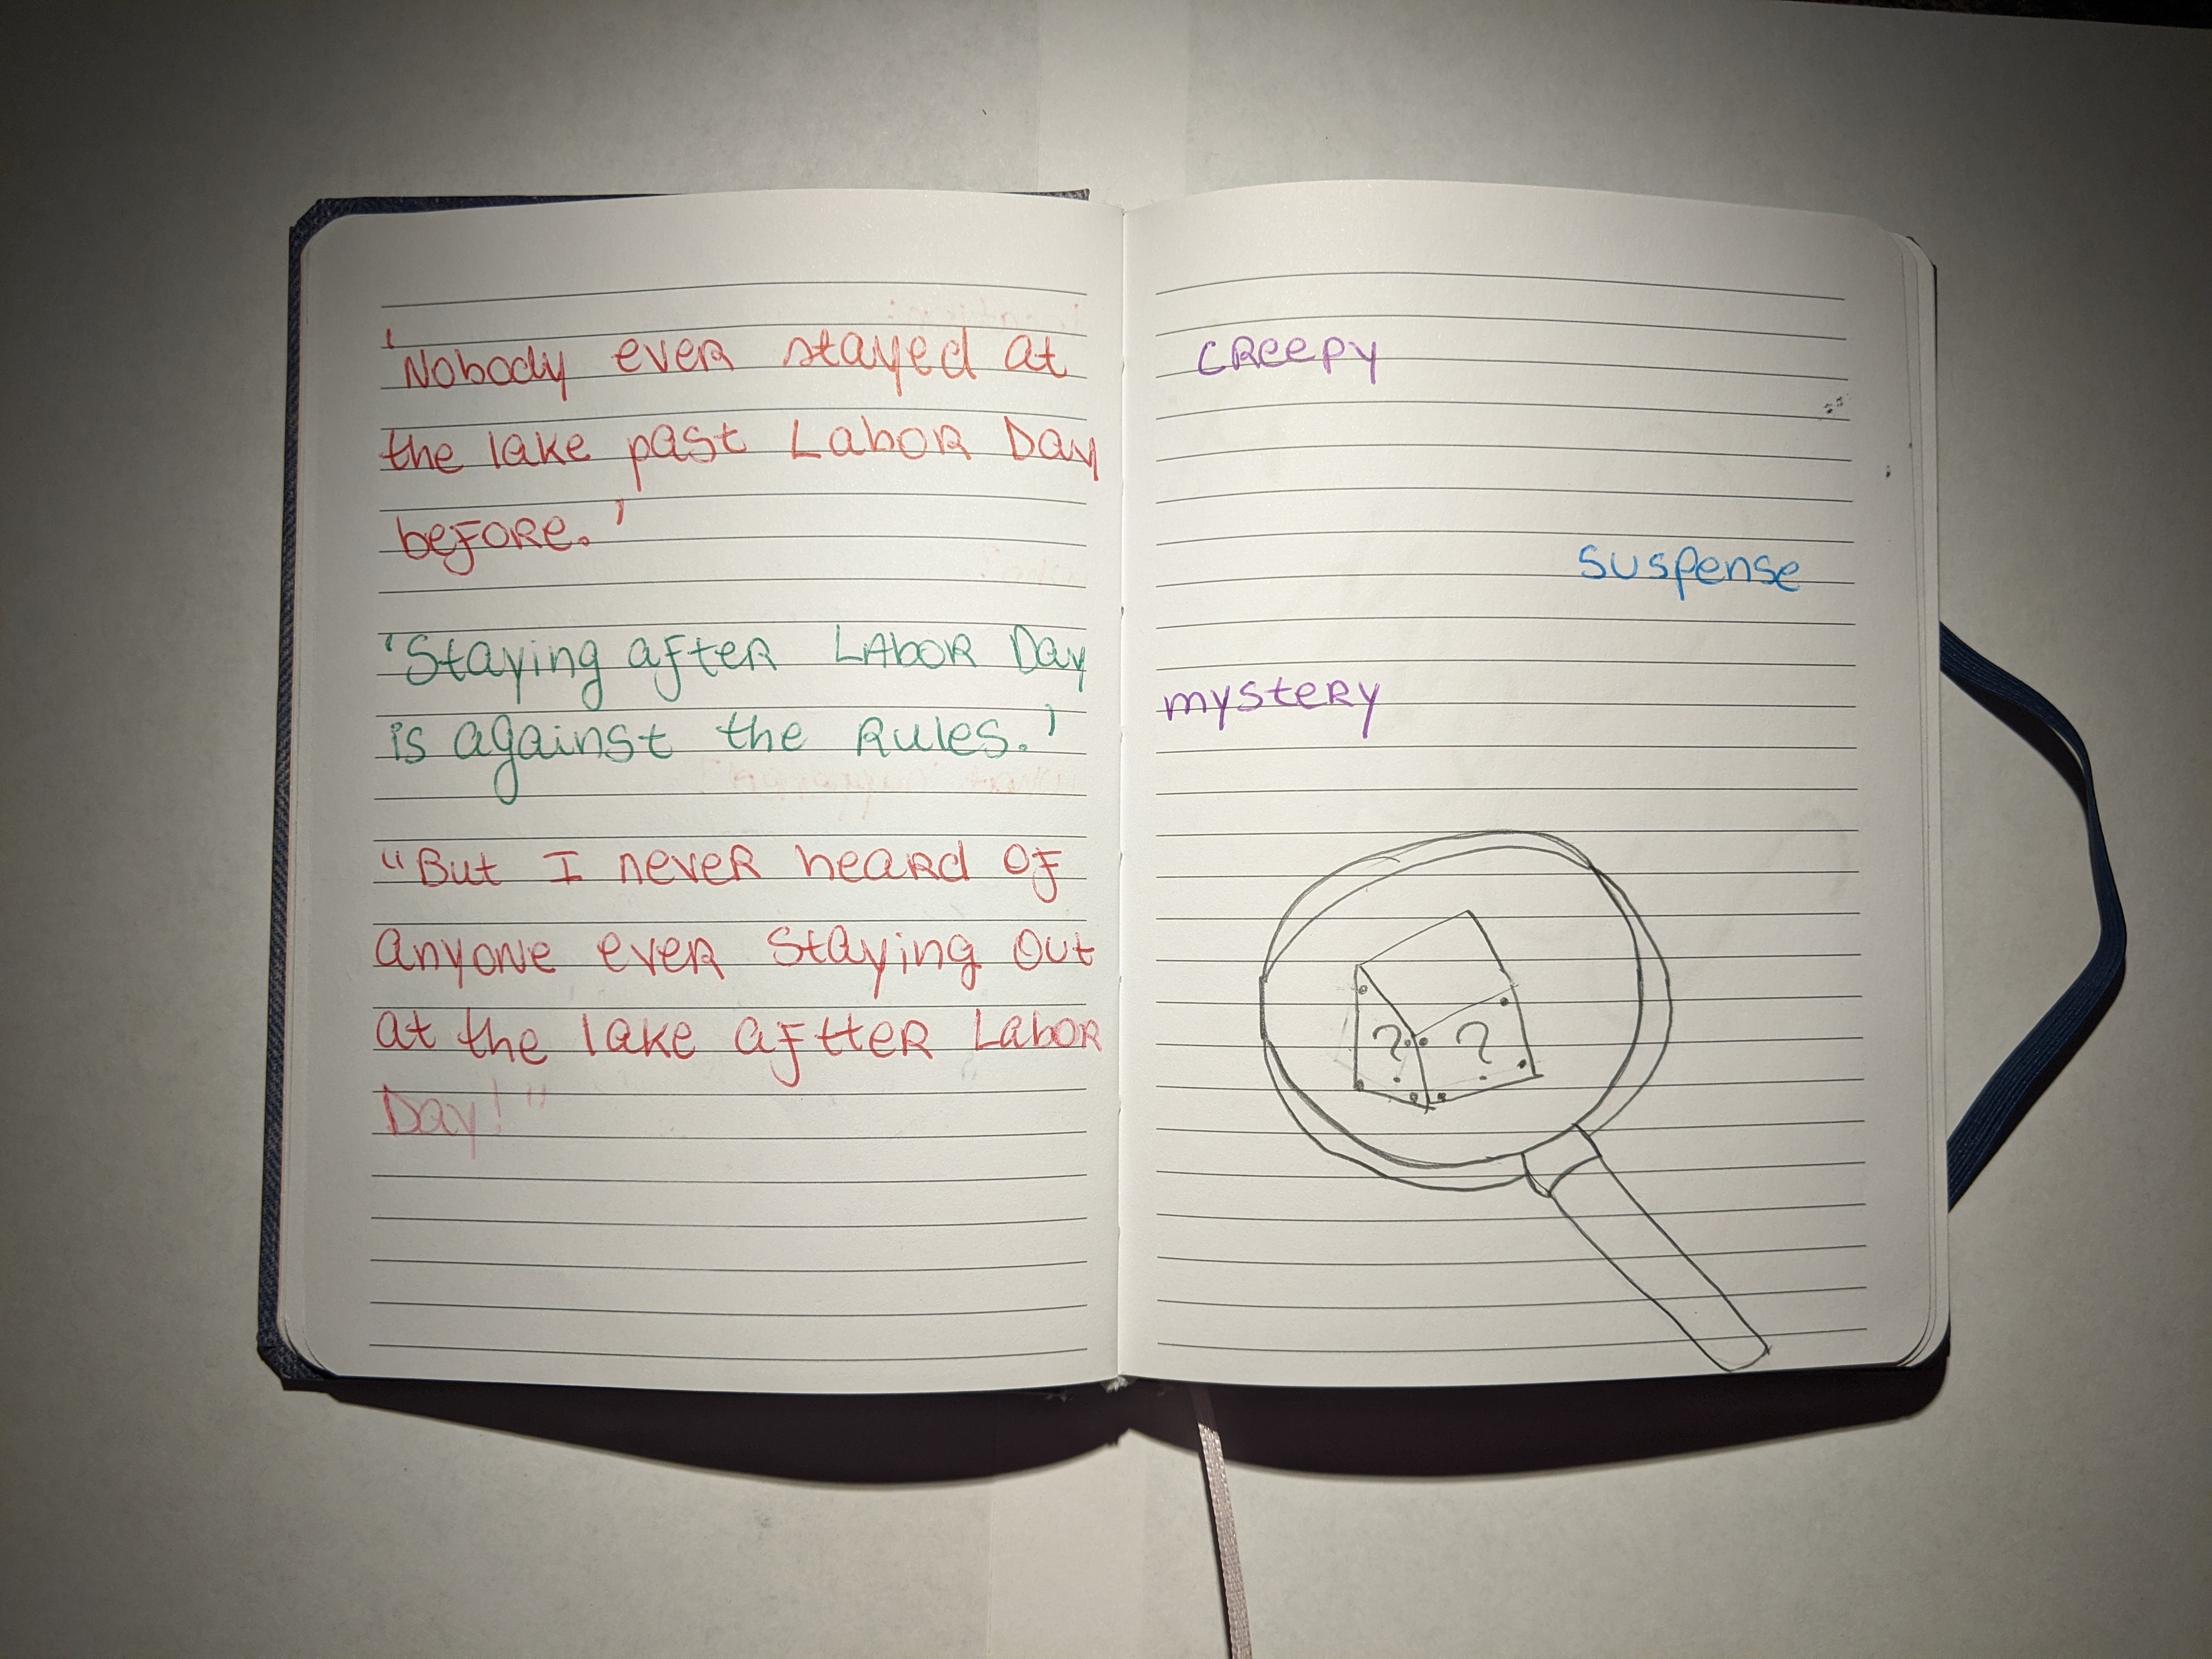 'Nobody ever stayed at
the lake past Labor Day
before.'
'Staying after Labor Day
is against the rules.'
"But I never heard of
anyone ever staying out
at the lake aftter Labor
Day!"
creepy
suspense
mystery
? ?